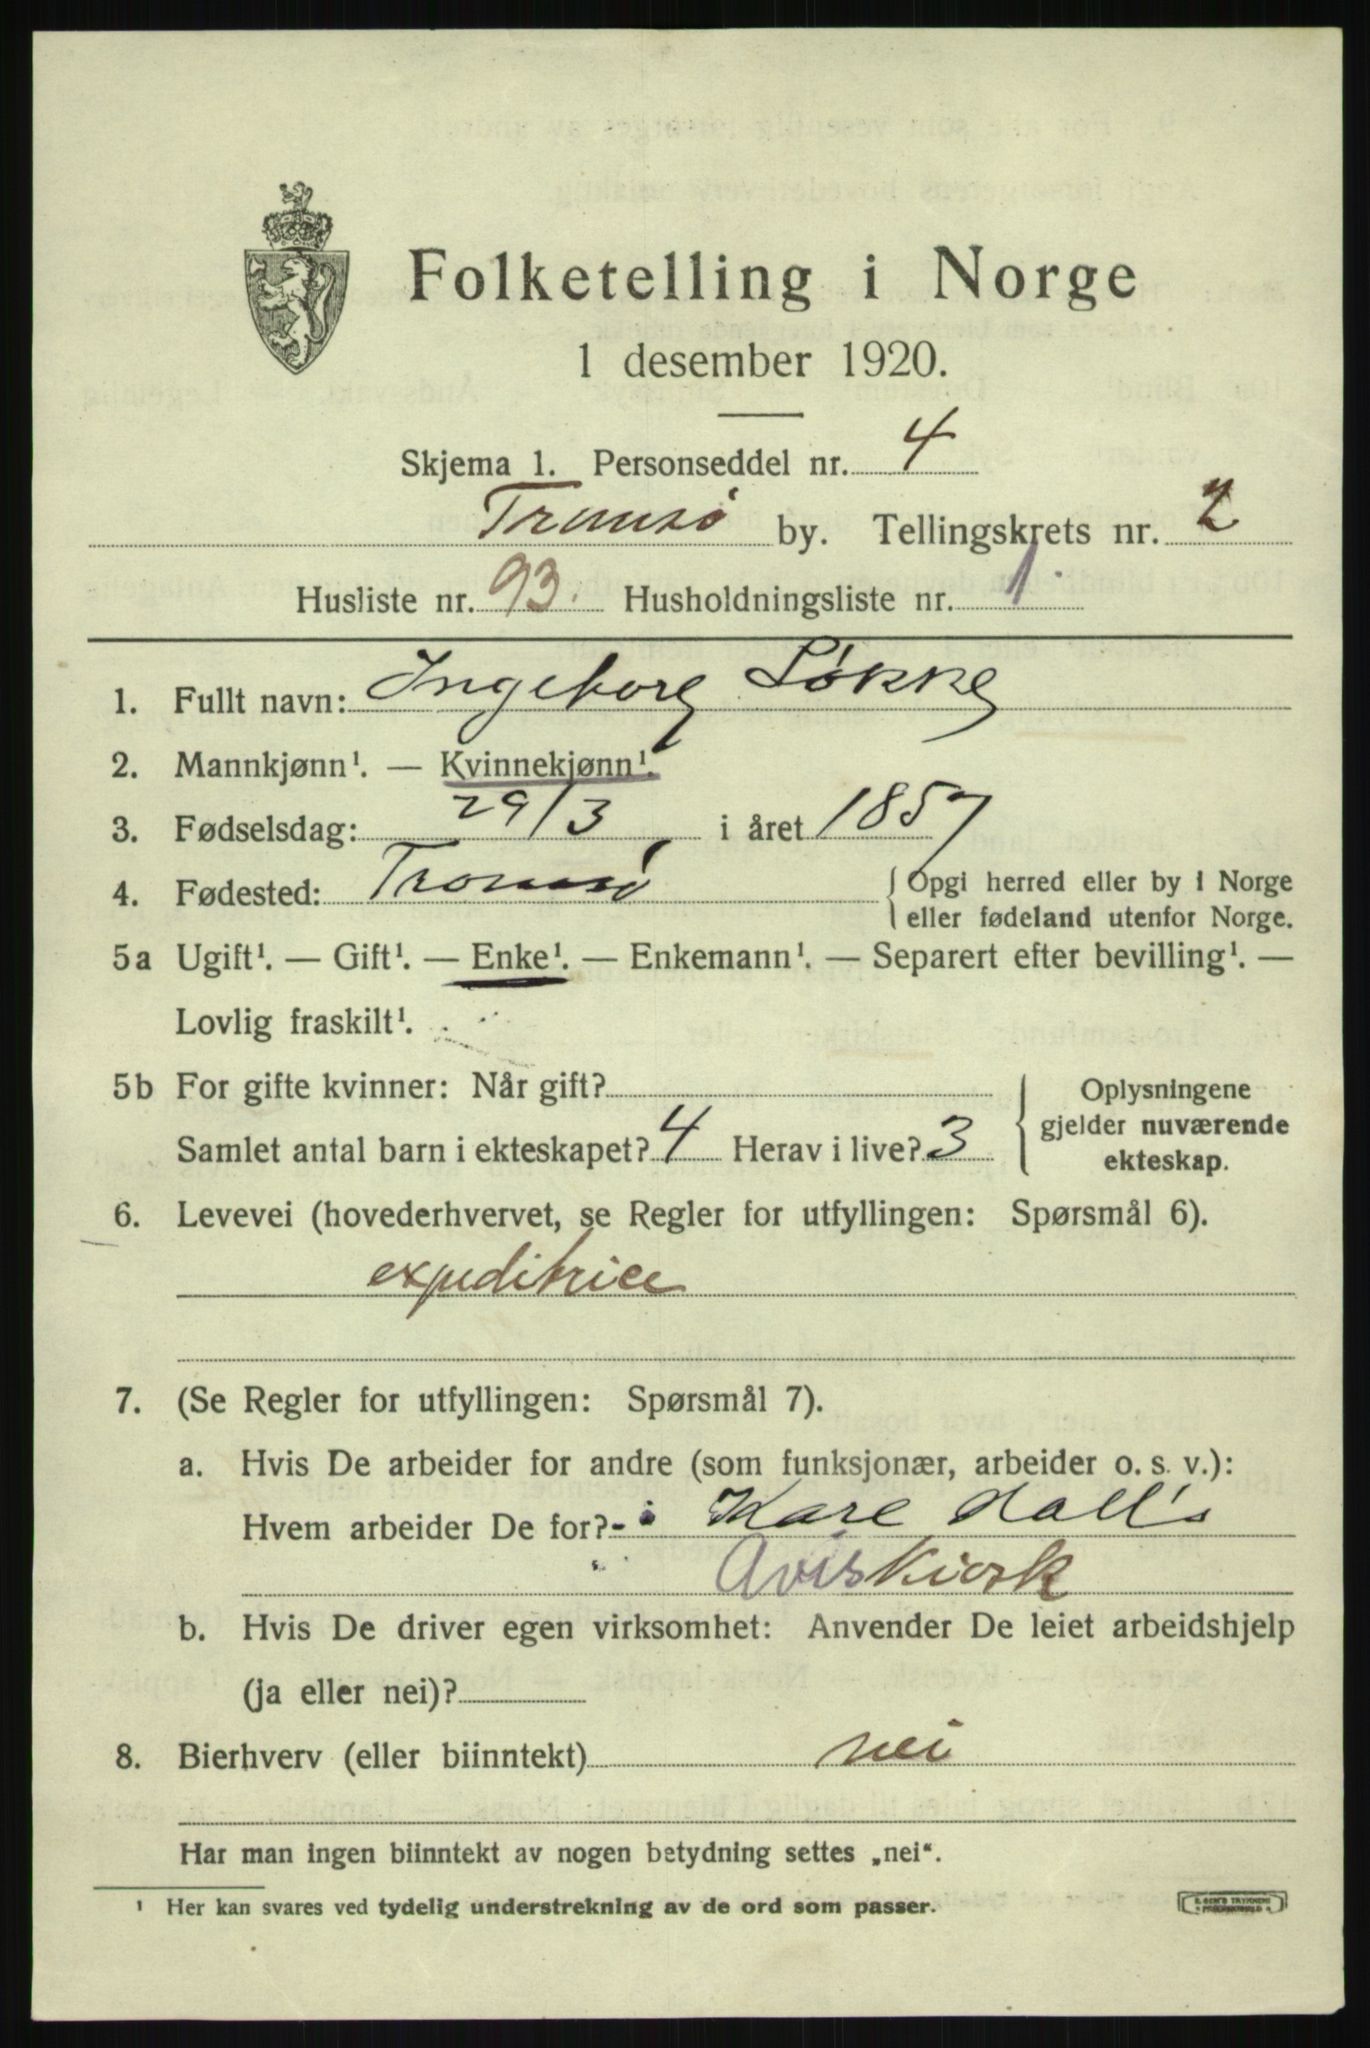 Folketelling i Norge
1 desember 1920.
Skjema 1. Personseddel nr. 4
Tromsø by. Tellingskrets nr. 2
Husliste nr. 93. Husholdningsliste nr. 1.
1. Fullt navn: Ingeborg Løkke
2. Mannkjønn¹. — Kvinnekjønn¹.
3. Fødselsdag: 29/3 i året 1857
4. Fødested: Tromsø { Opgi herred eller by i Norge
eller fødeland utenfor Norge.
5a Ugift¹. — Gift¹. — Enke¹. — Enkemann¹. — Separert efter bevilling¹. —
Lovlig fraskilt¹.
5b For gifte kvinner: Når gift? Oplysningene
gjelder nuværende
Samlet antal barn i ekteskapet? 4 Herav i live? 3 ekteskap.
6. Levevei (hovederhvervet, se Regler for utfyllingen: Spørsmål 6).
expeditrice
7. (Se Regler for utfyllingen: Spørsmål 7).
a. Hvis De arbeider for andre (som funksjonær, arbeider o. s. v.):
Hvem arbeider De for? - i Kare Hall's
Aviskiosk
b. Hvis De driver egen virksomhet: Anvender De leiet arbeidshjelp
(ja eller nei)?
8. Bierhverv (eller biinntekt) nei
Har man ingen biinntekt av nogen betydning settes „nei“.
¹ Her kan svares ved tydelig understrekning av de ord som passer.